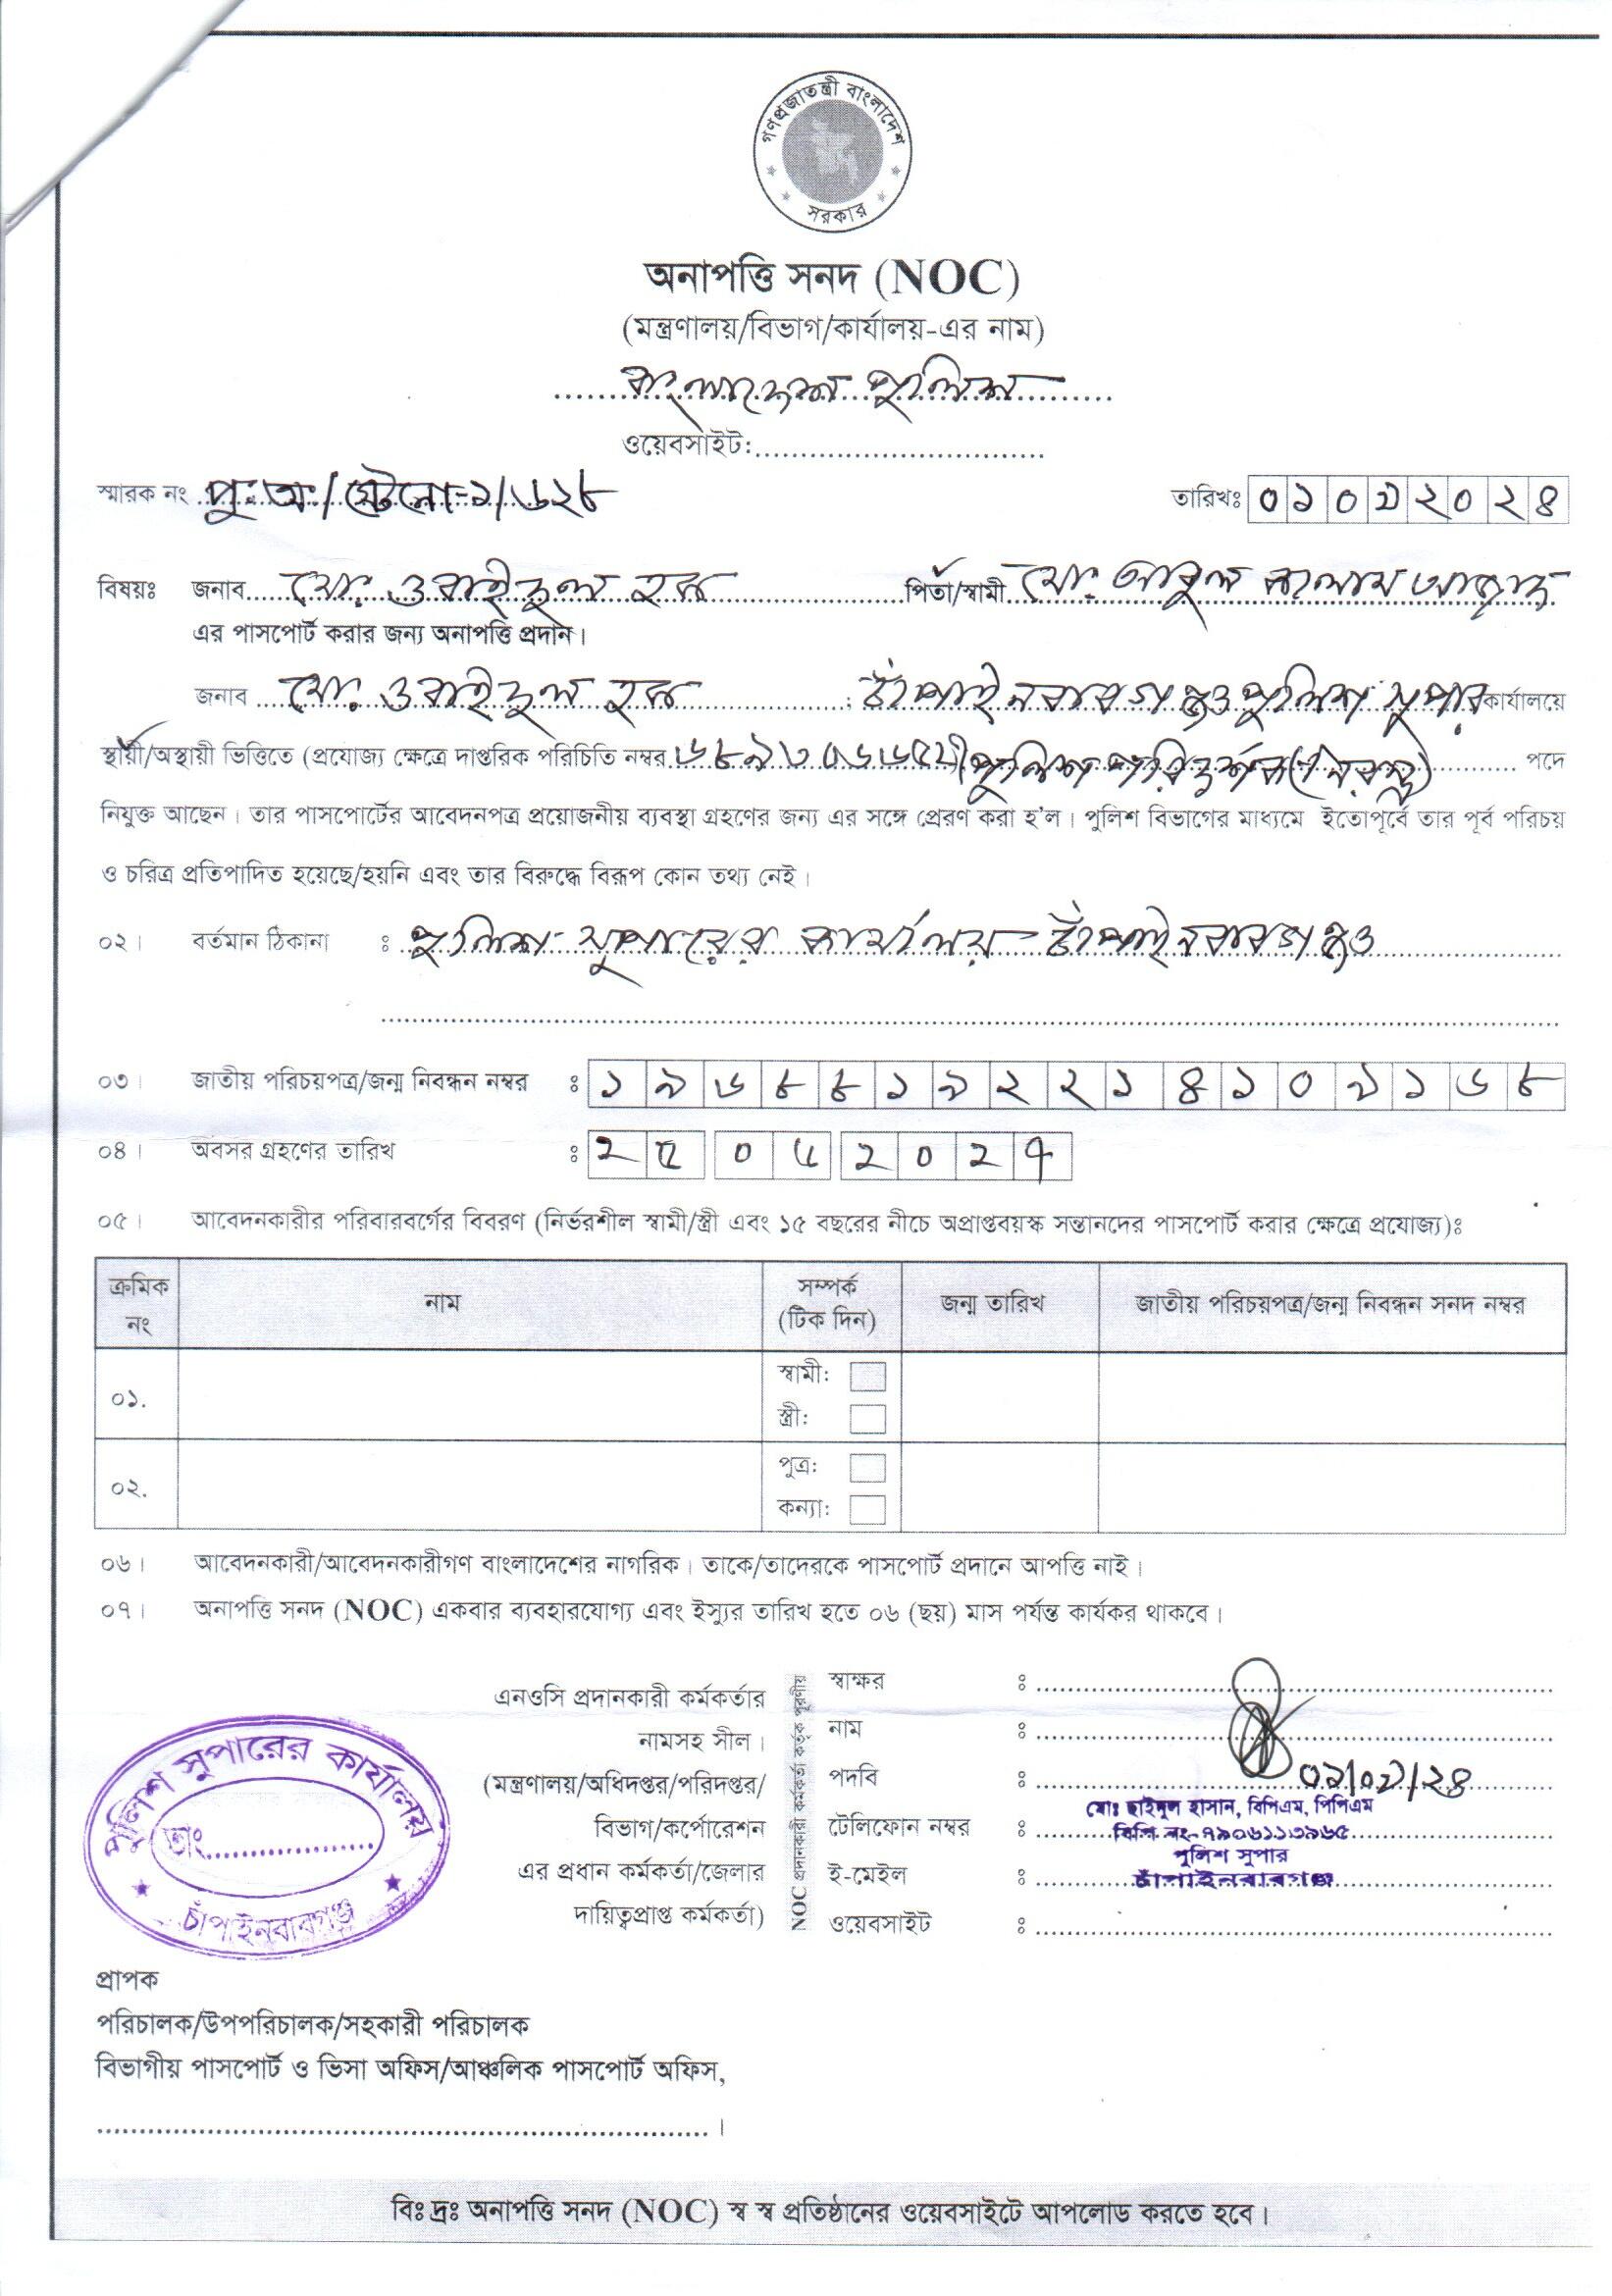 গণপ্রজাতন্ত্রী বাংলাদেশ
সরকার
অনাপত্তি সনদ (NOC)
(মন্ত্রণালয়/বিভাগ/কার্যালয়-এর নাম)
বাংলাদেশ পুলিশ
ওয়েবসাইট:
স্মারক নং পু:অ:/স্টেনো-১/৬২৮ তারিখঃ ০১০৭২০২৪
বিষয়ঃ জনাব মো: ওবাইদুল হক পিতা/স্বামী মো: আবুল কালাম আজাদ
এর পাসপোর্ট করার জন্য অনাপত্তি প্রদান।
জনাব মো: ওবাইদুল হক ; চাঁপাইনবাবগঞ্জ পুলিশ সুপার কার্যালয়ে
স্থায়ী/অস্থায়ী ভিত্তিতে (প্রযোজ্য ক্ষেত্রে দাপ্তরিক পরিচিতি নম্বর পুলিশ পরিদর্শক (নিরস্ত্র) পদে
নিযুক্ত আছেন। তার পাসপোর্টের আবেদনপত্র প্রয়োজনীয় ব্যবস্থা গ্রহণের জন্য এর সঙ্গে প্রেরণ করা হ'ল। পুলিশ বিভাগের মাধ্যমে ইতোপূর্বে তার পূর্ব পরিচয়
ও চরিত্র প্রতিপাদিত হয়েছে/হয়নি এবং তার বিরুদ্ধে বিরূপ কোন তথ্য নেই।
০২। বর্তমান ঠিকানা : পুলিশ সুপারের কার্যালয় চাঁপাইনবাবগঞ্জ
০৩। জাতীয় পরিচয়পত্র/জন্ম নিবন্ধন নম্বর ঃ ১৯৬৮৮১৯২২১৪১০৯১৬৮
০৪। অবসর গ্রহণের তারিখ ঃ ২৫০৫২০২৭
০৫। আবেদনকারীর পরিবারবর্গের বিবরণ (নির্ভরশীল স্বামী/স্ত্রী এবং ১৫ বছরের নীচে অপ্রাপ্তবয়স্ক সন্তানদের পাসপোর্ট করার ক্ষেত্রে প্রযোজ্য)ঃ
ক্রমিক নং নাম সম্পর্ক (টিক দিন) জন্ম তারিখ জাতীয় পরিচয়পত্র/জন্ম নিবন্ধন সনদ নম্বর
০১. স্বামী:
স্ত্রী:
০২. পুত্র:
কন্যা:
০৬। আবেদনকারী/আবেদনকারীগণ বাংলাদেশের নাগরিক। তাকে/তাদেরকে পাসপোর্ট প্রদানে আপত্তি নাই।
০৭। অনাপত্তি সনদ (NOC) একবার ব্যবহারযোগ্য এবং ইস্যুর তারিখ হতে ০৬ (ছয়) মাস পর্যন্ত কার্যকর থাকবে।
এনওসি প্রদানকারী কর্মকর্তার
নামসহ সীল।
(মন্ত্রণালয়/অধিদপ্তর/পরিদপ্তর/
বিভাগ/কর্পোরেশন
এর প্রধান কর্মকর্তা/জেলার
দায়িত্বপ্রাপ্ত কর্মকর্তা)
NOC প্রদানকারী কর্মকর্তা কর্তৃক পূরণীয়
স্বাক্ষর ঃ
নাম ঃ
পদবি ঃ
টেলিফোন নম্বর ঃ
ই-মেইল ঃ
ওয়েবসাইট ঃ
মোঃ ছাইদুল হাসান, বিপিএম, পিপিএম
বিপি নং-৭৯০৬১১৩৯৬৫
পুলিশ সুপার
চাঁপাইনবাবগঞ্জ
পুলিশ সুপারের কার্যালয়
তাং
চাঁপাইনবাবগঞ্জ
প্রাপক
পরিচালক/উপপরিচালক/সহকারী পরিচালক
বিভাগীয় পাসপোর্ট ও ভিসা অফিস/আঞ্চলিক পাসপোর্ট অফিস,
।
বিঃ দ্রঃ অনাপত্তি সনদ (NOC) স্ব স্ব প্রতিষ্ঠানের ওয়েবসাইটে আপলোড করতে হবে।